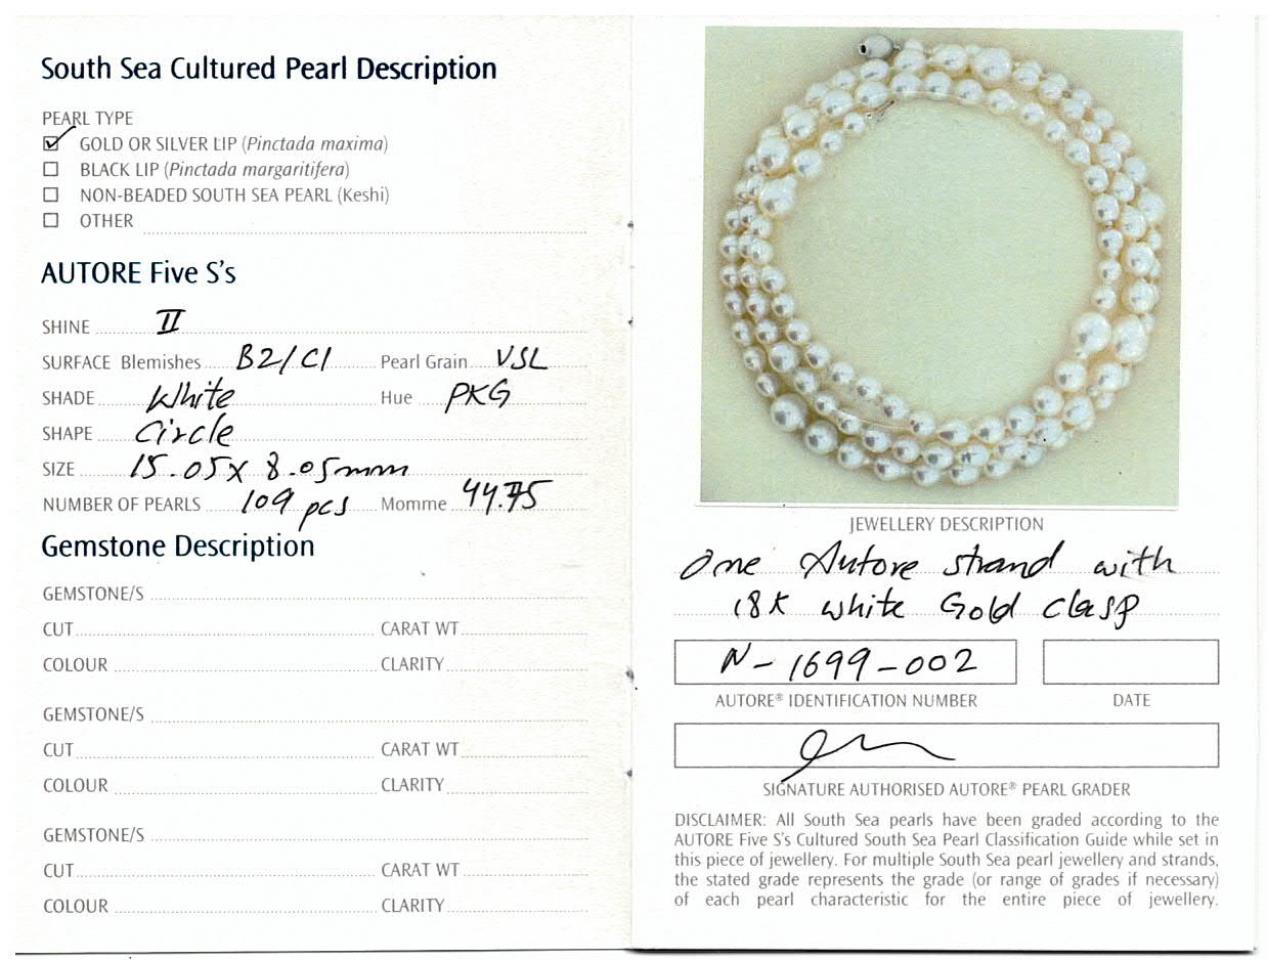 South Sea Cultured Pearl Description
PEARL TYPE
☑ GOLD OR SILVER LIP (Pinctada maxima)
☐ BLACK LIP (Pinctada margaritifera)
☐ NON-BEADED SOUTH SEA PEARL (Keshi)
☐ OTHER
AUTORE Five S's
SHINE II
SURFACE Blemishes B2/C1 Pearl Grain VSL
SHADE White Hue PKG
SHAPE Circle
SIZE 15.05 x 8.05mm
NUMBER OF PEARLS 109 pcs Momme 44.75
Gemstone Description
GEMSTONE/S
CUT CARAT WT
COLOUR CLARITY
GEMSTONE/S
CUT CARAT WT
COLOUR CLARITY
GEMSTONE/S
CUT CARAT WT
COLOUR CLARITY
JEWELLERY DESCRIPTION
One Autore strand with
18K white Gold clasp
N-1699-002
AUTORE® IDENTIFICATION NUMBER DATE
SIGNATURE AUTHORISED AUTORE® PEARL GRADER
DISCLAIMER: All South Sea pearls have been graded according to the
AUTORE Five S's Cultured South Sea Pearl Classification Guide while set in
this piece of jewellery. For multiple South Sea pearl jewellery and strands,
the stated grade represents the grade (or range of grades if necessary)
of each pearl characteristic for the entire piece of jewellery.